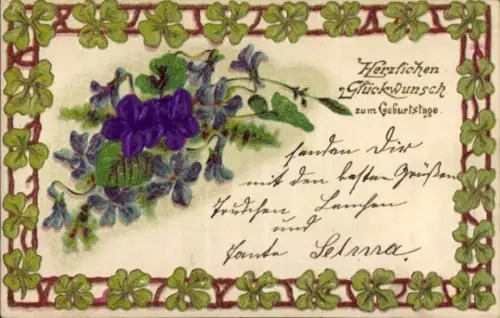 Herzlichen
Glückwunsch
zum Geburtstage.
senden Dir
mit den besten Grüßen
Trudchen Lenchen
und
Tante Selma.